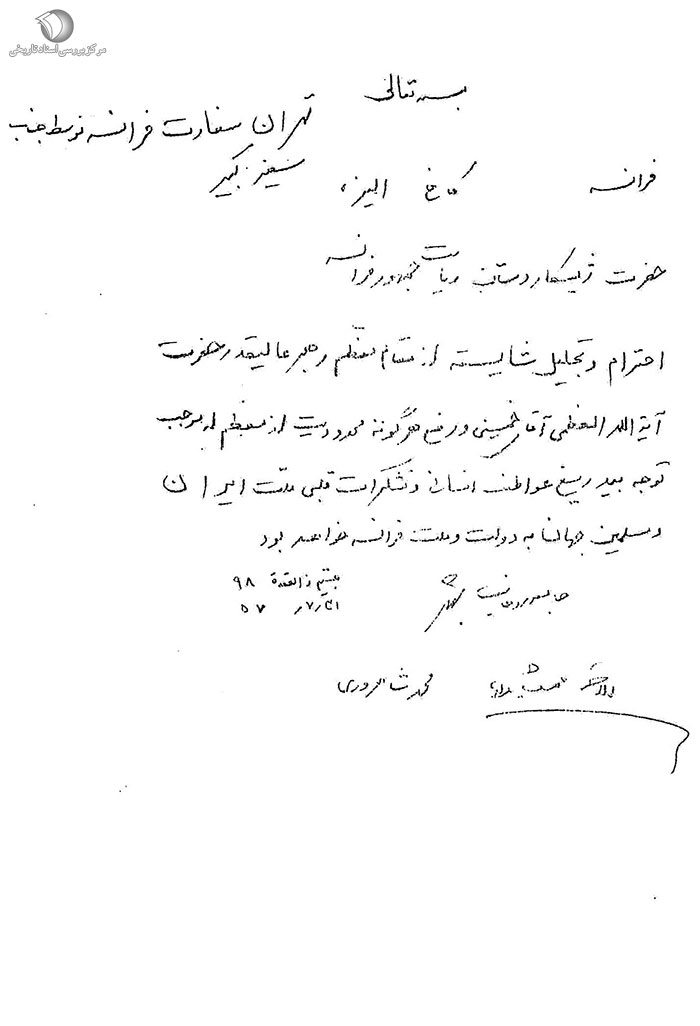 مرکز بررسی اسناد تاریخی
بسمه تعالی
تهران سفارت فرانسه توسط جناب
سفیر کبیر
فرانسه کاخ الیزه
حضرت ژیسکاردستان ریاست جمهور فرانسه
احترام و تجلیل شایسته از مقام معظم رهبر عالیقدر حضرت
آیة الله العظمی آقای خمینی و رفع هرگونه محدودیت از معظم له موجب
توجه بیدریغ عواطف انسانی و تشکرات قلبی ملت ایران
و مسلمین جهان به دولت و ملت فرانسه خواهد بود
جامعه روحانیت
بیستم ذالقعدة ۹۸
۵۷
محمد شاهرودی